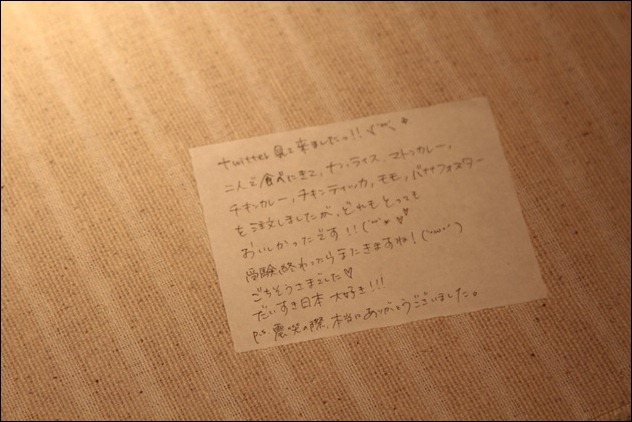 twitter見て来ましたっ!! ヾ(´ω`、✦
二人で食べにきて、ナン、ライス、マトンカレー、
チキンカレー、チキンティッカ、モモ、バナナフォスター
を注文しましたが、どれもとっても
おいしかったです!! (´ω`*♡♡
受験終わったらまたきますね! (´・ω・`)
ごちそうさまでした♡
だいすき日本 大好き!!!
p.s. 震災の際、本当にありがとうございました。